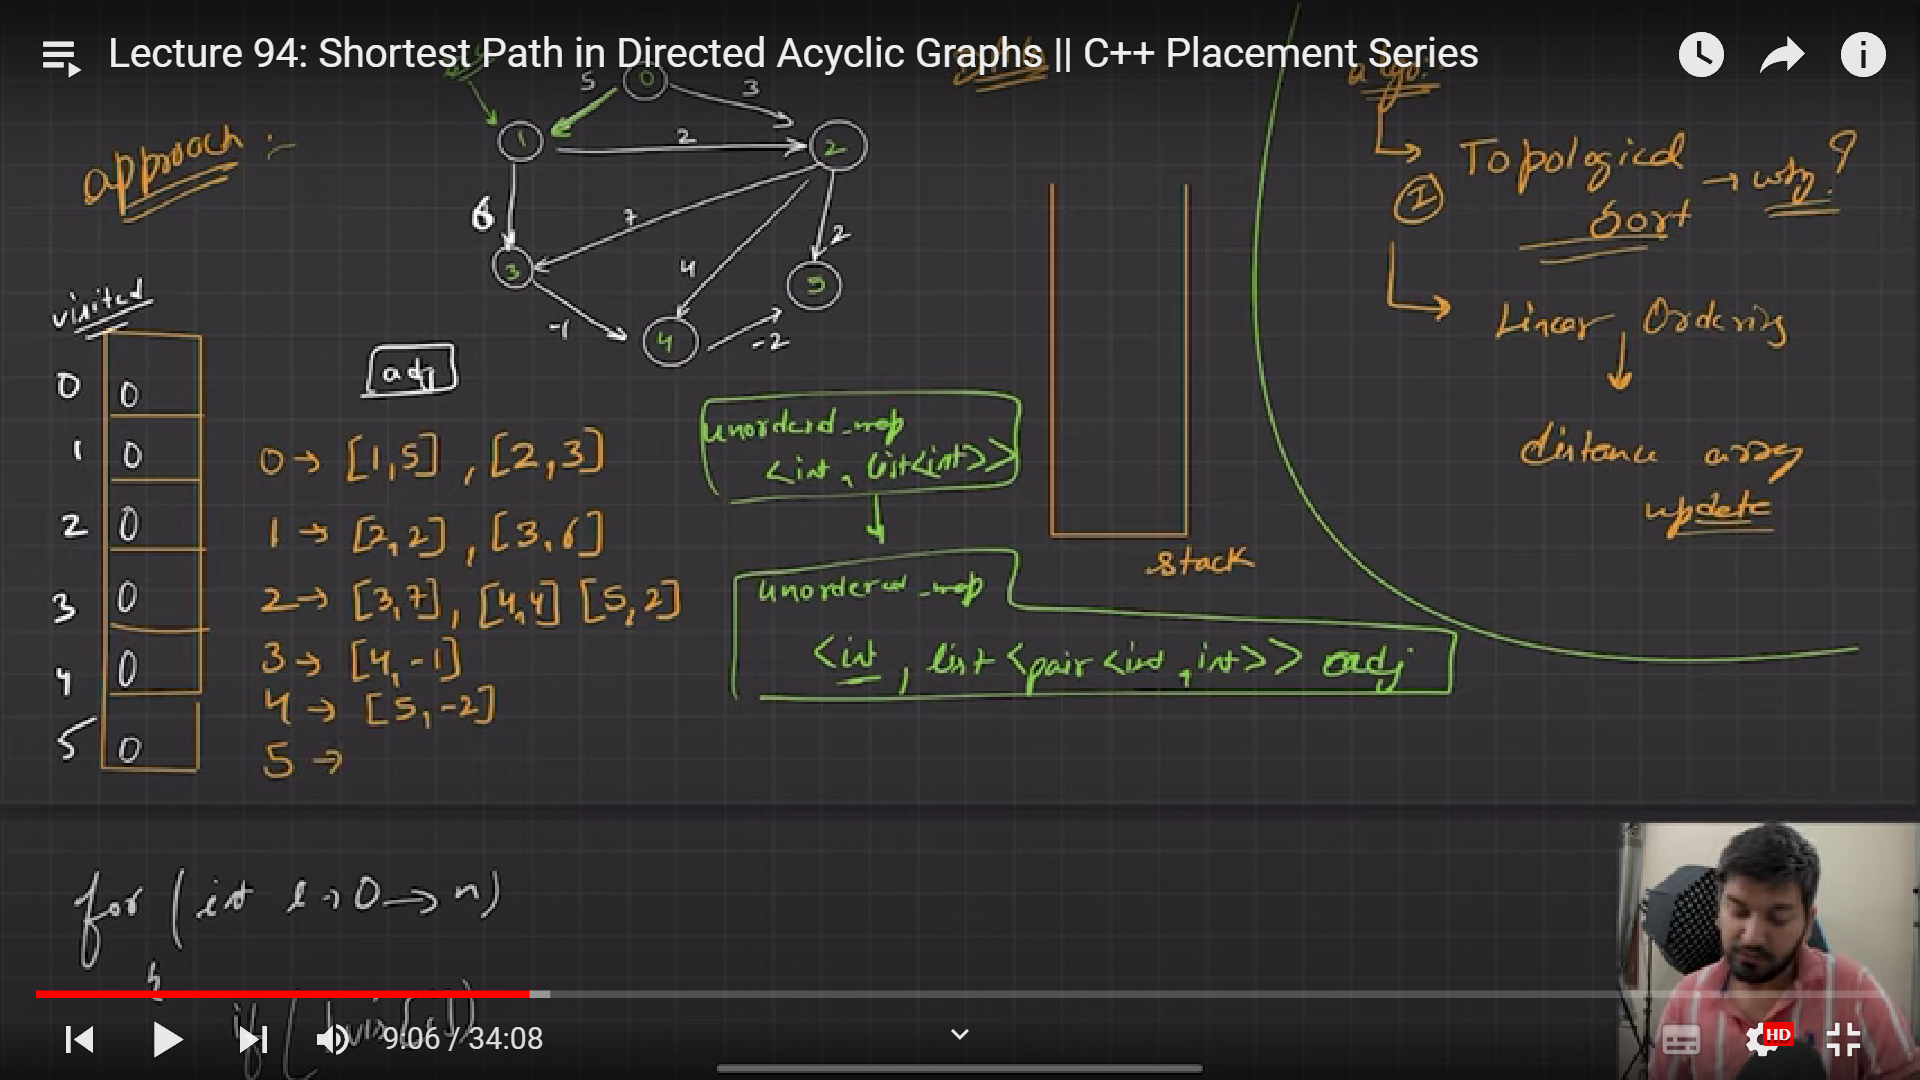 Lecture 94: Shortest Path in Directed Acyclic Graphs || C++ Placement Series
approach :-
0
5
3
1
2
2
6
7
4
2
3
5
-1
4
-2
visited
0 0
1 0
2 0
3 0
4 0
5 0
adj
0 → [1,5] , [2,3]
1 → [2,2] , [3,6]
2 → [3,7] , [4,4] [5,2]
3 → [4,-1]
4 → [5,-2]
5 →
unordered_map
<int, list<int>>
unordered_map
<int, list<pair<int,int>>> adj
stack
algo:
1 Topological Sort → why?
Linear Ordering
distance array
update
for (int i → 0 → n)
{
if (
9:06 / 34:08
HD